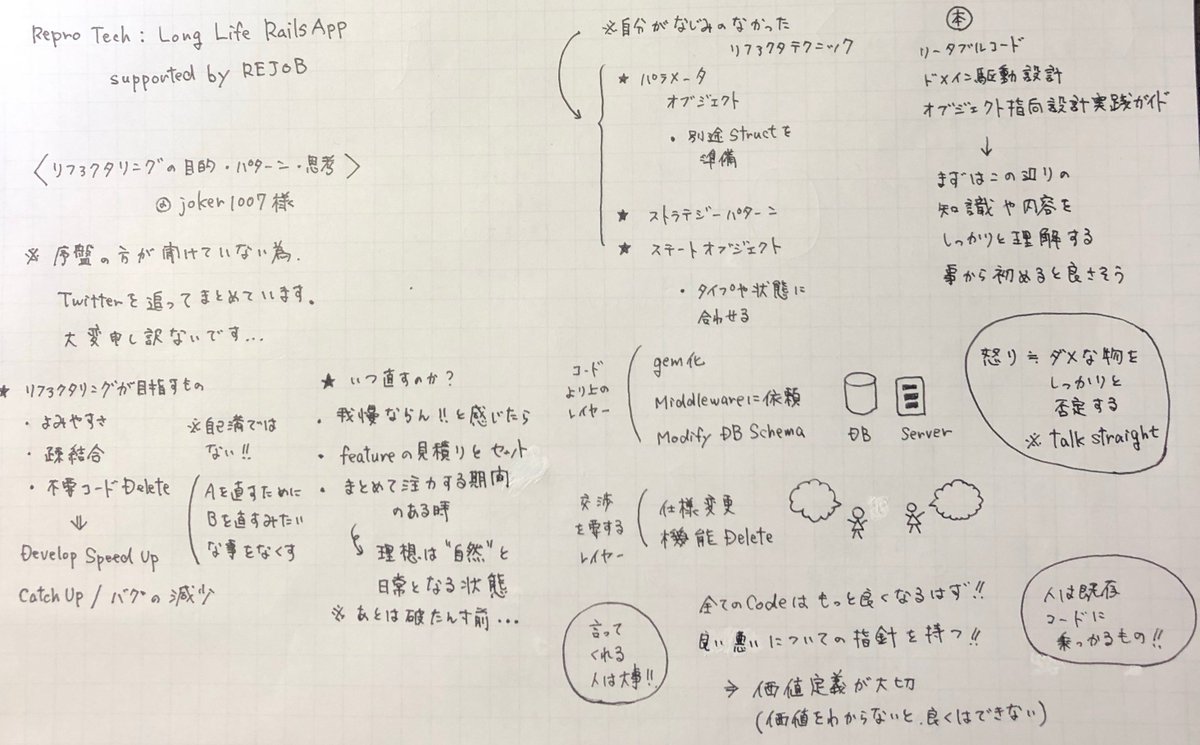 Repro Tech : Long Life Rails App
supported by REJOB
〈リファクタリングの目的・パターン・思考〉
@joker1007様
※ 序盤の方が聞けていない為、
Twitterを追ってまとめています。
大変申し訳ないです...
★ リファクタリングが目指すもの
・よみやすさ
・疎結合
・不要コードDelete
⇓
Develop Speed Up
Catch Up / バグの減少
※自己満では
ない!!
Aを直すために
Bを直すみたい
な事をなくす
★ いつ直すのか?
・我慢ならん!!と感じたら
・featureの見積りとセット
・まとめて注力する期間
のある時
理想は"自然"と
日常となる状態
※ あとは破たんす前...
※自分がなじみのなかった
リファクタテクニック
★ パラメータ
オブジェクト
・別途Structを
準備
★ ストラテジーパターン
★ ステートオブジェクト
・タイプや状態に
合わせる
コード
より上の
レイヤー
gem化
Middlewareに依頼
Modify DB Schema
DB
Server
交渉
を要する
レイヤー
仕様変更
機能Delete
全てのCodeはもっと良くなるはず!!
良い悪いについての指針を持つ!!
⇒ 価値定義が大切
(価値をわからないと、良くはできない)
言って
くれる
人は大事!!
本
リーダブルコード
ドメイン駆動設計
オブジェクト指向設計実践ガイド
↓
まずはこの辺りの
知識や内容を
しっかりと理解する
事から初めると良さそう
怒り≒ダメな物を
しっかりと
否定する
※ talk straight
人は既存
コードに
乗っかるもの!!